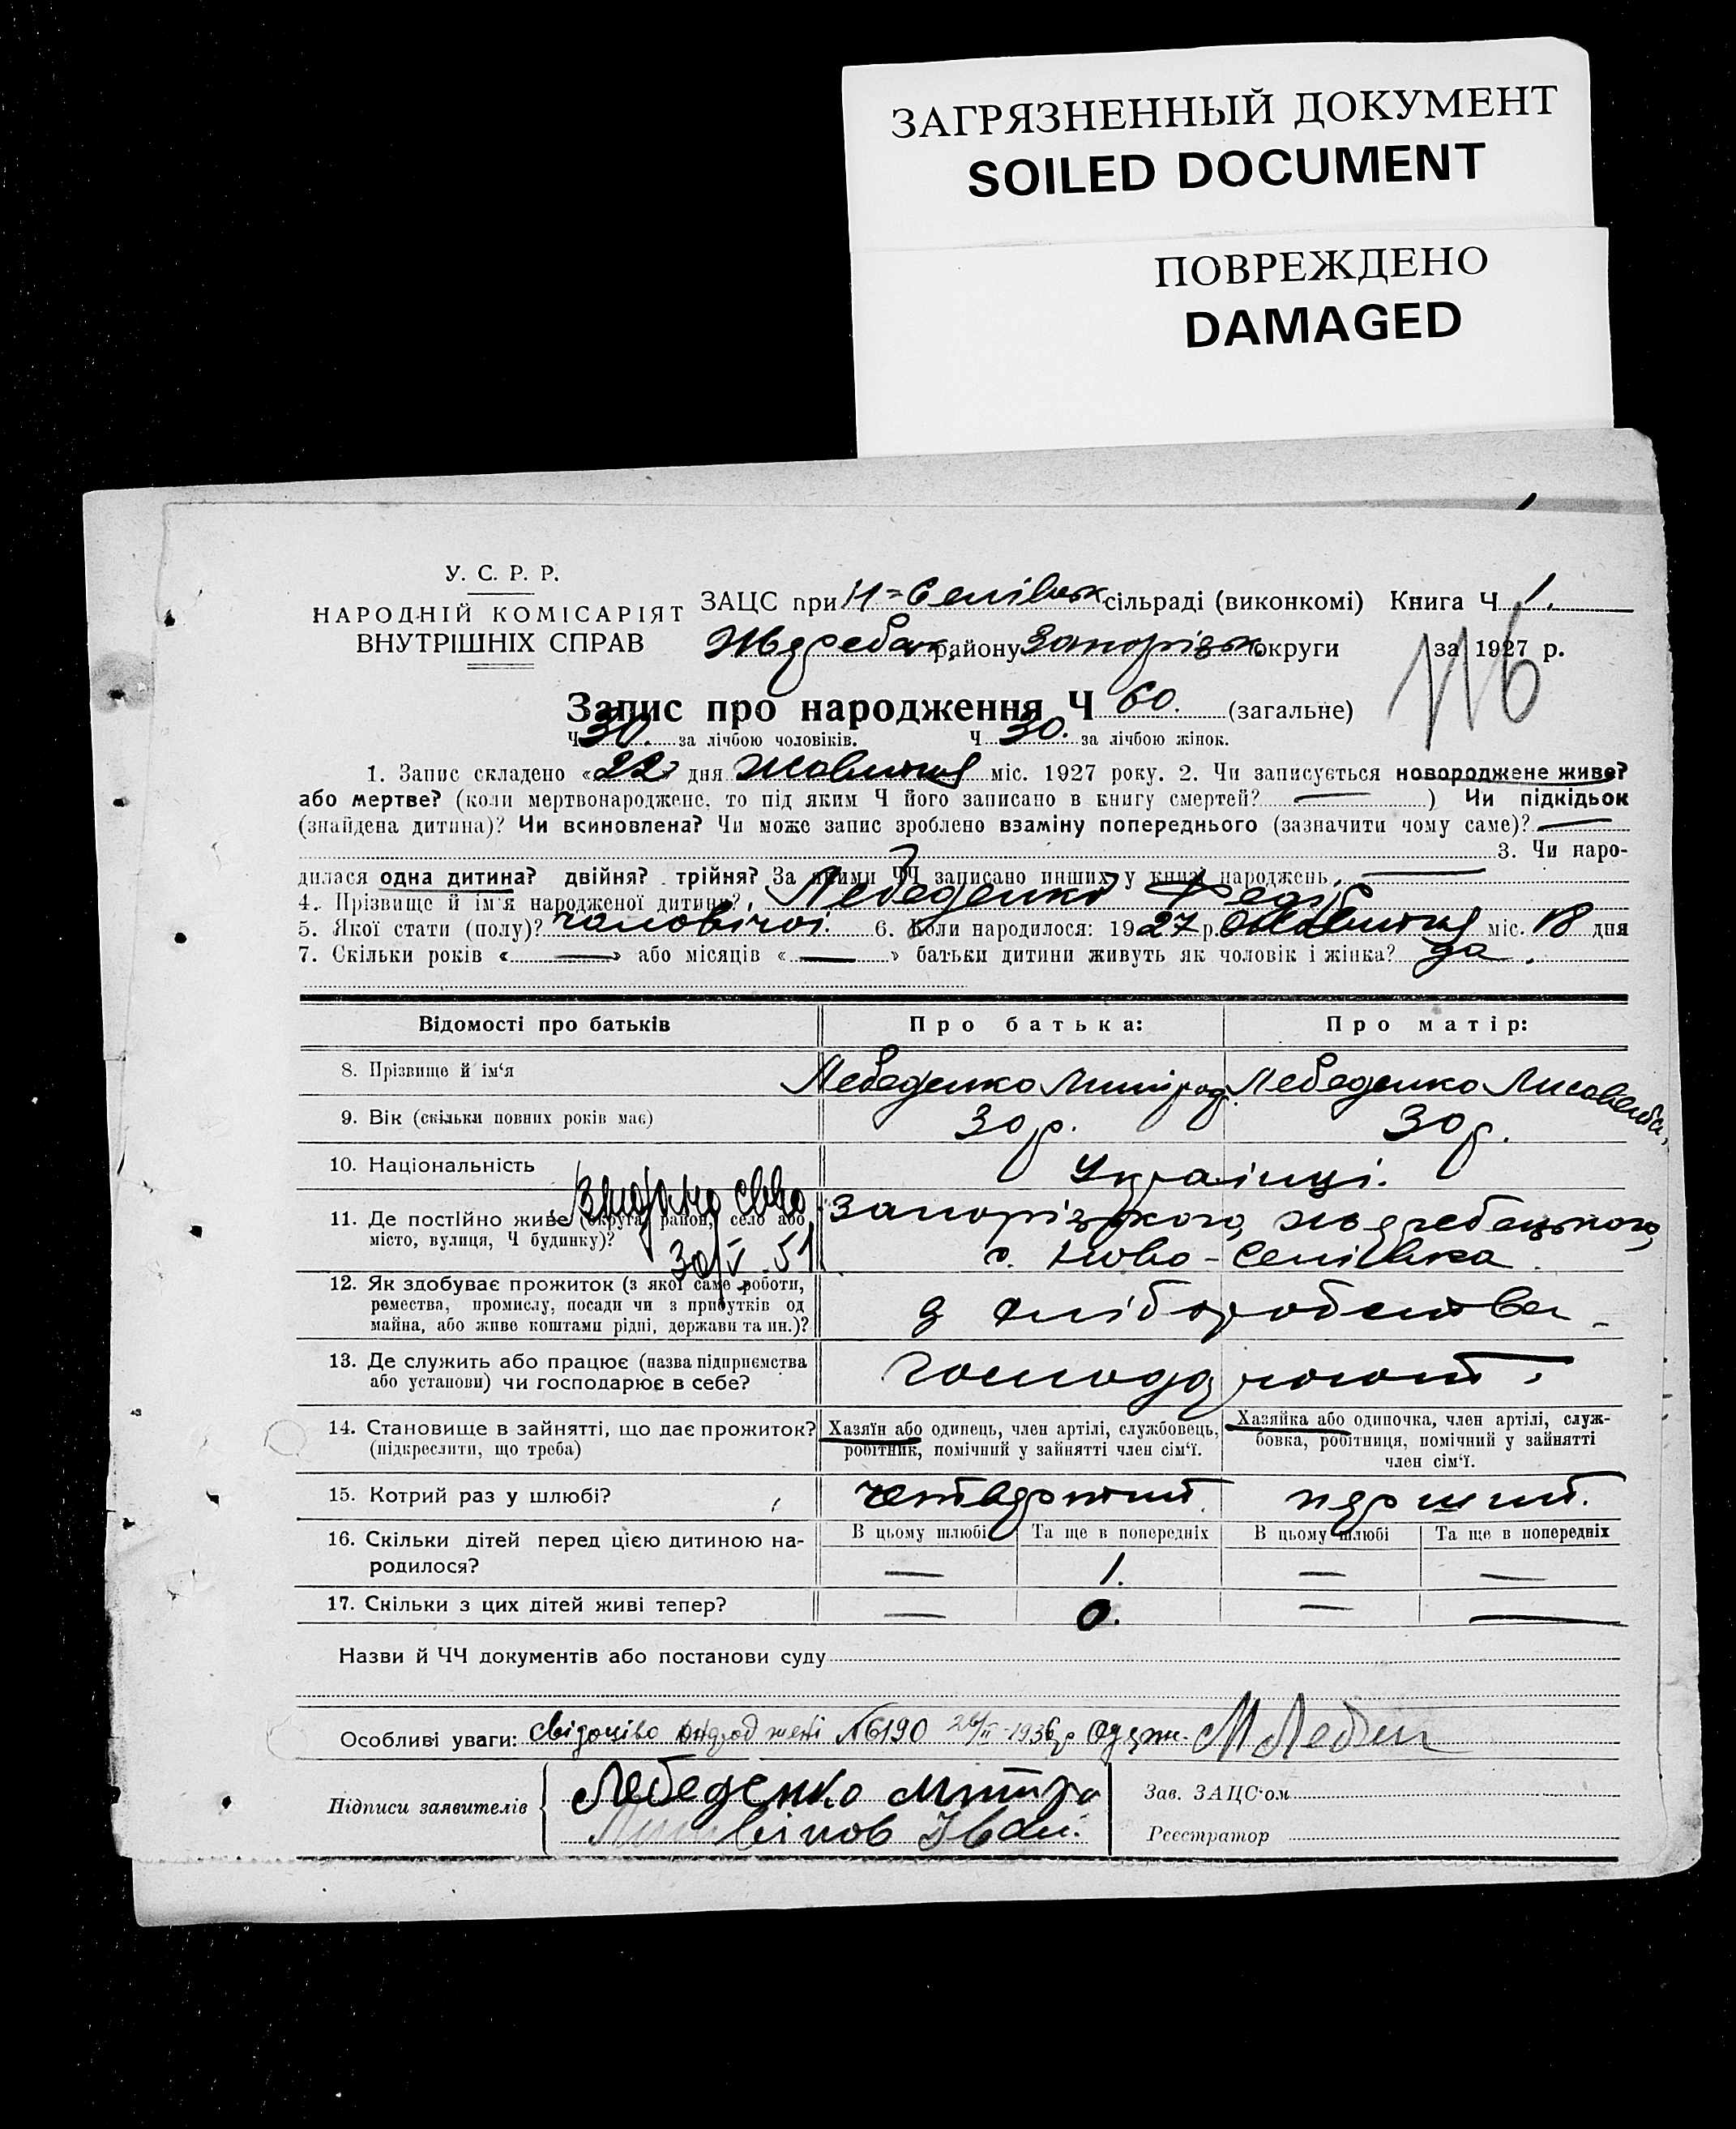 ЗАГРЯЗНЕННЫЙ ДОКУМЕНТ
SOILED DOCUMENT
ПОВРЕЖДЕНО
DAMAGED
У. С. Р. Р.
НАРОДНІЙ КОМІСАРІЯТ
ВНУТРІШНІХ СПРАВ
ЗАЦС при Н=Селівськ сільраді (виконкомі) Книга Ч 1.
Жеребец. району Запорізьк. округи за 1927 р.
116
Запис про народження Ч 60. (загальне)
Ч 30. за лічбою чоловіків. Ч 30. за лічбою жінок.
1. Запис складено «22» дня Жовтня міс. 1927 року. 2. Чи записується новороджене живе?
або мертве? (коли мертвонароджене, то під яким Ч його записано в книгу смертей? —) Чи підкідьок
(знайдена дитина)? Чи всиновлена? Чи може запис зроблено взаміну попереднього (зазначити чому саме)? —
3. Чи наро-
дилася одна дитина? двійня? трійня? За якими ЧЧ записано инших у книзі народжень. —
4. Прізвище й ім'я народженої дитини? Лебеденко Федір
5. Якої стати (полу)? чоловічої. 6. Коли народилося: 1927 р. Жовтня міс. 18 дня
7. Скільки років «—» або місяців «—» батьки дитини живуть як чоловік і жінка? да.
Відомості про батьків Про батька: Про матір:
8. Прізвище й ім'я Лебеденко Лебеденко
9. Вік (скільки повних років має) 30 р. 30 р.
10. Національність Українці.
11. Де постійно живе (округа, район, село або Запорізького, Жеребецького,
місто, вулиця, Ч будинку)? с. Ново-Селівка.
30/V.51
12. Як здобуває прожиток (з якої саме роботи,
ремества, промислу, посади чи з прибутків од
майна, або живе коштами рідні, держави та ин.)? з хліборобства
13. Де служить або працює (назва підприємства
або установи) чи господарює в себе?
14. Становище в зайнятті, що дає прожиток? Хазяїн або одинець, член артілі, службовець, Хазяйка або одиночка, член артілі, служ-
(підкреслити, що треба) робітник, помічний у зайнятті член сім'ї. бовка, робітниця, помічний у зайнятті
член сім'ї.
15. Котрий раз у шлюбі? четвертий. перший.
16. Скільки дітей перед цією дитиною на- В цьому шлюбі Та ще в попередніх В цьому шлюбі Та ще в попередніх
родилося? — 1. — —
17. Скільки з цих дітей живі тепер? — 0. — —
Назви й ЧЧ документів або постанови суду
Особливі уваги: №6190 26/II-1936р.
Підписи заявителів Лебеденко Митро Зав. ЗАЦС'ом
Іван. Реєстратор